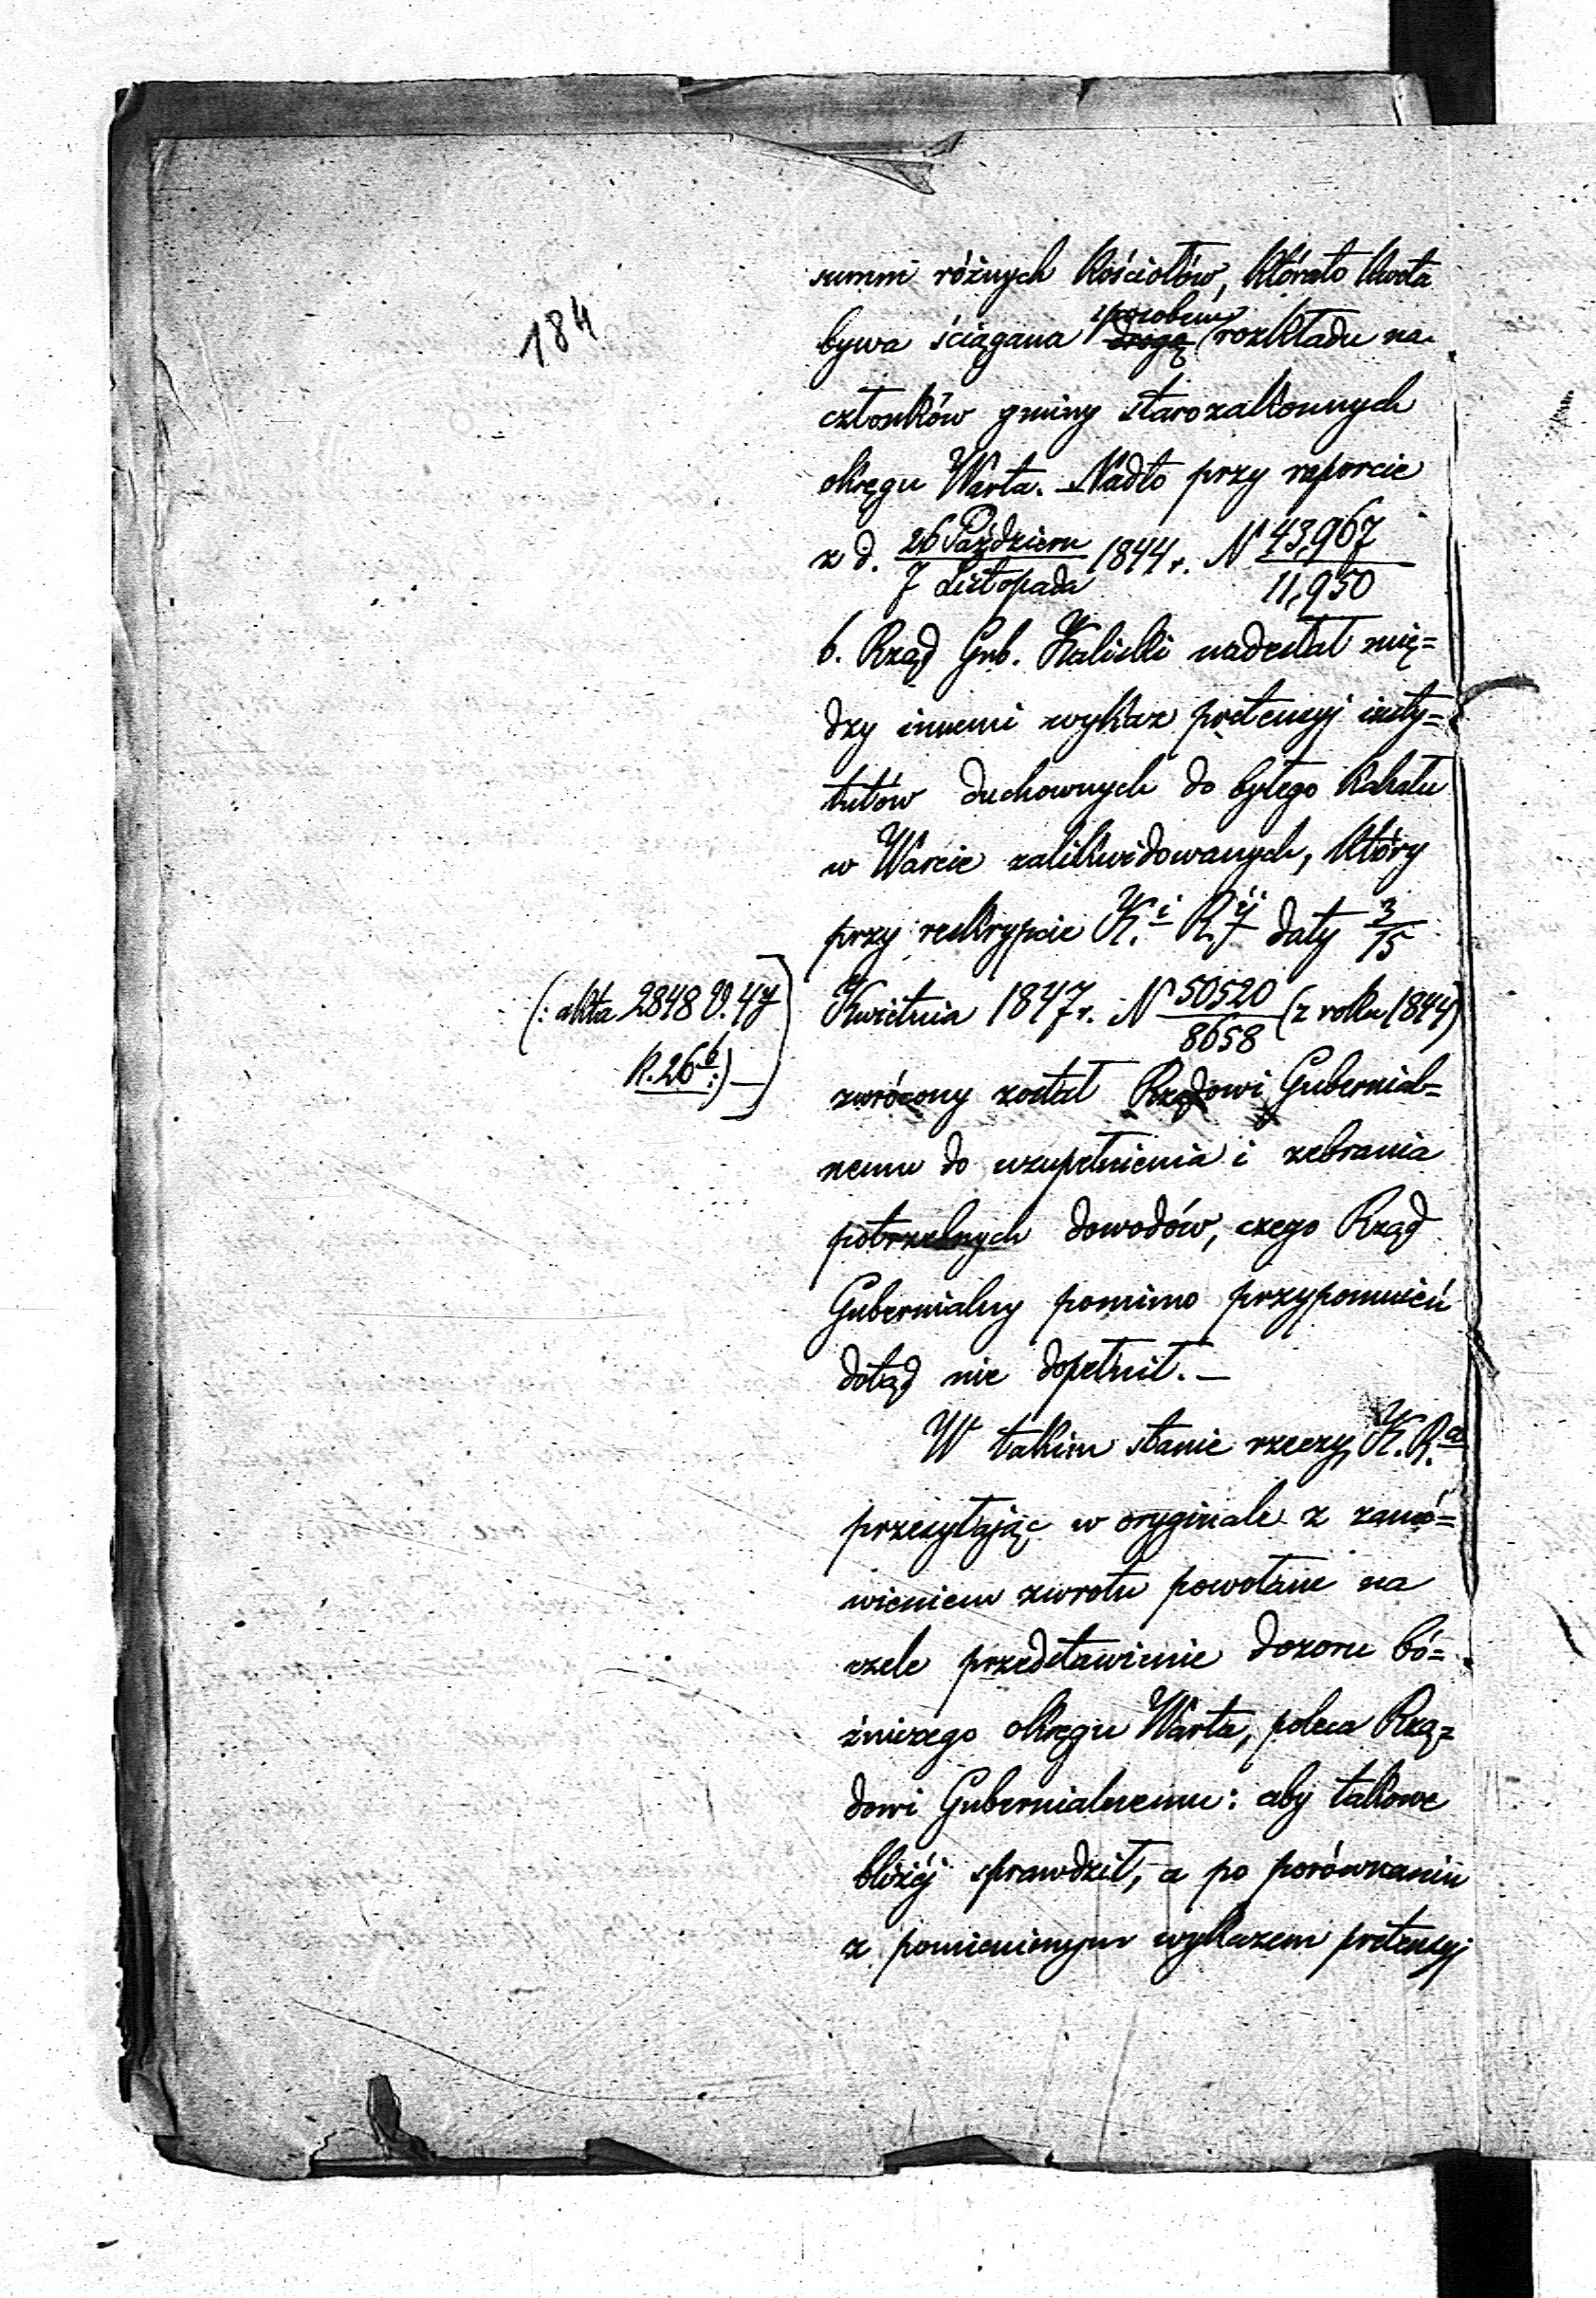 184
summ różnych Kościołów, którato kwota
bywa ściągana sposobem drogą rozkładu na
członków gminy starozakonnych
okręgu Warta. — Nadto przy raporcie
z d. 26 Październ / 7 Listopada 1844 r. N 43,967 / 11,950
b. Rząd Gub. Kaliski nadesłał mię=
dzy innemi wykaz pretensyj insty=
tutów duchownych do byłego Kahału
w Warcie zalikwidowanych, który
przy reskrypcie K.i R.ij daty 3/15
(: akta 2848 V. 47
k. 26b :) —
Kwietnia 1847 r. N 50520 / 8658 (z roku 1844)
zwrócony został Rządowi Gubernial=
nemu do uzupełnienia i zebrania
potrzebnych dowodów, czego Rząd
Gubernialny pomimo przypomnień
dotąd nie dopełnił. —
W takim stanie rzeczy, K. R.a
przesyłając w oryginale z zamó=
wieniem zwrotu powołane na
czele przedstawienie dozoru bó=
żniczego okręgu Warta, poleca Rzą=
dowi Gubernialnemu: aby takowe
bliżéj sprawdził, a po porównaniu
z pomienionym wykazem pretensyj